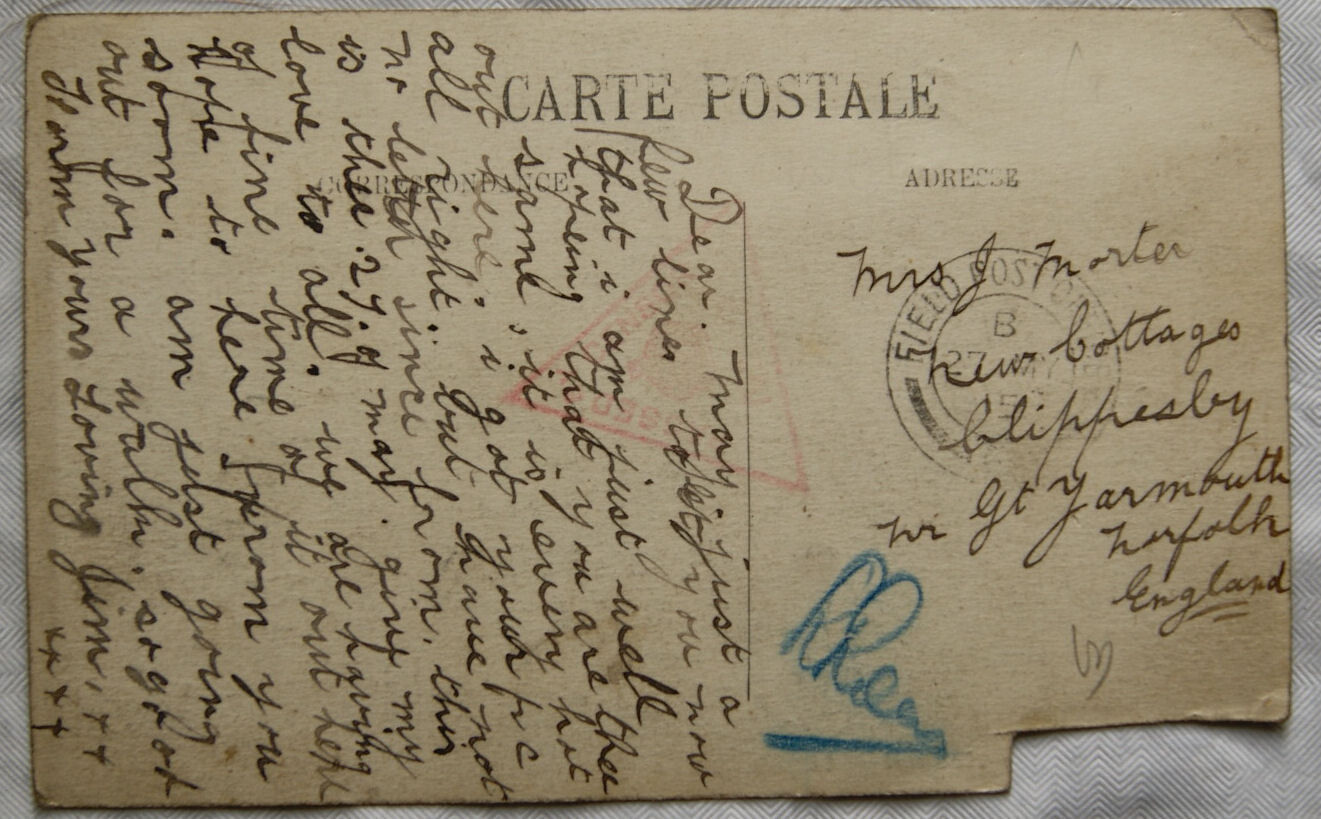 CARTE POSTALE
CORRESPONDANCE
ADRESSE
Dear may just a
few lines to let you now
that i am just well
hopeing that you are the
same. it is every hot
out here. i got your p c
all right. but have not
no letter since from. this
is the 27 of may. give my
love to all. we are having
a fine time of it out here
Hope to hear from you
soon. am just going
out for a walk. so good
From yours Loving Jim. x x
x x x
Mrs J Morter
New Cottages
Clippesby
nr Gt Yarmouth
Norfolk
England
FIELD POST OFFICE
B
27 MY
15